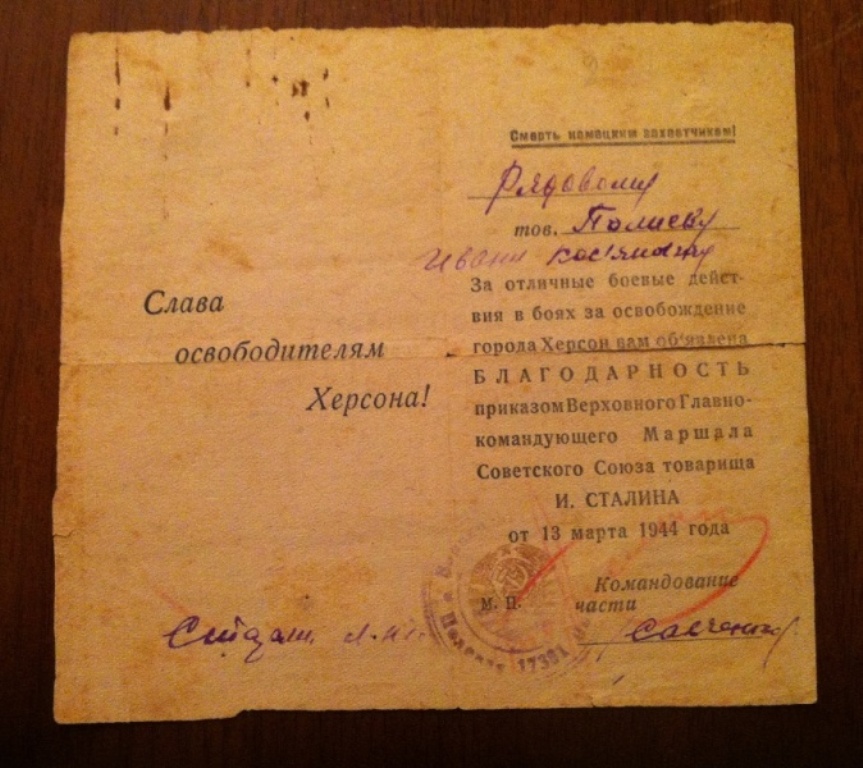 Слава
освободителям
Херсона!
Смерть немецким захватчикам!
Рядовому
тов. Полиеву
Ивану
За отличные боевые дейст-
вия в боях за освобождение
города Херсон вам об'явлена
БЛАГОДАРНОСТЬ
приказом Верховного Главно-
командующего Маршала
Советского Союза товарища
И. СТАЛИНА
от 13 марта 1944 года
М. П.
Командование
части
17381